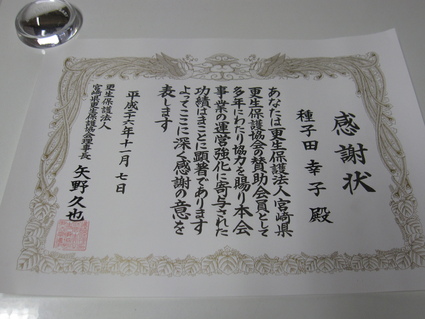 感謝状
種子田 幸子 殿
あなたは更生保護法人宮崎県
更生保護協会の賛助会員として
多年にわたり協力を賜り本会
事業の運営強化に寄与された
功績はまことに顕著であります
よってここに深く感謝の意を
表します
平成二十六年十一月七日
更生保護法人
宮崎県更生保護協会理事長 矢野久也